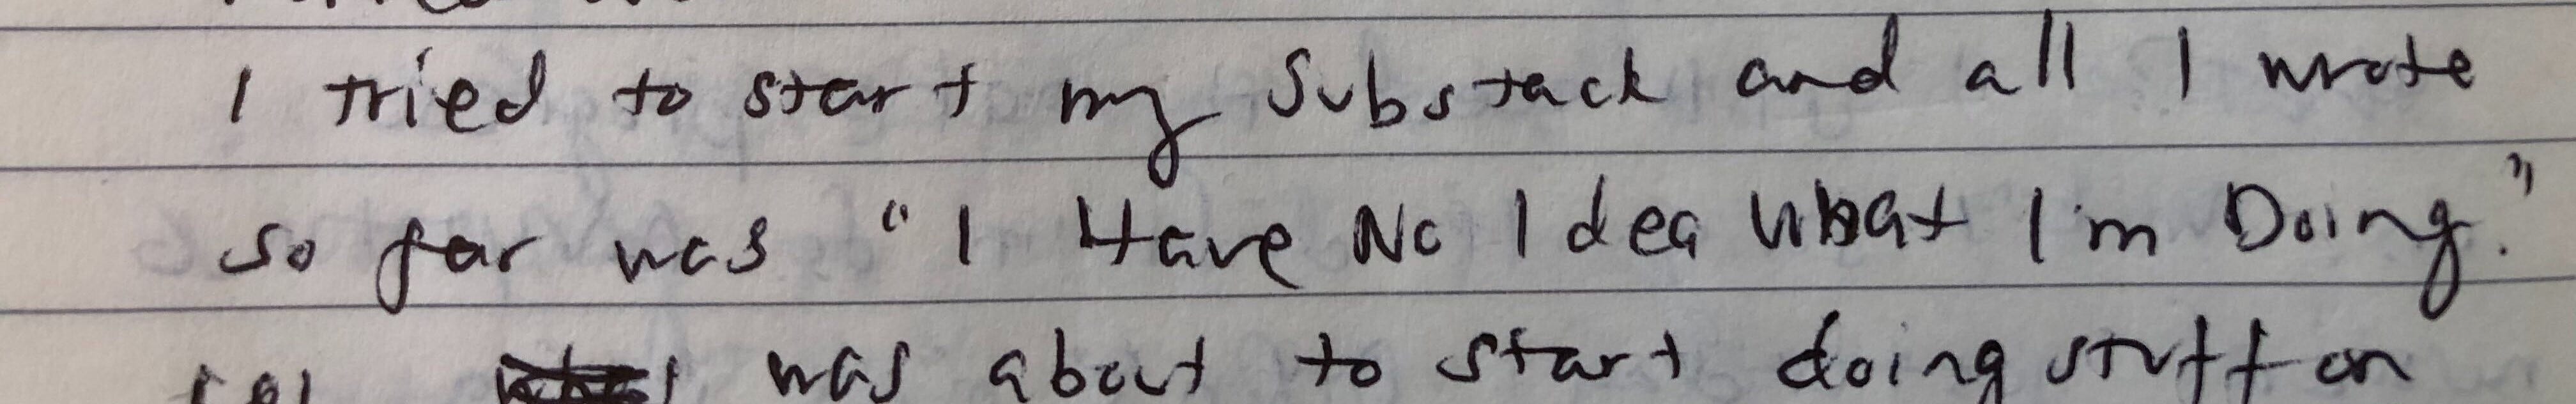 I tried to start my Substack and all I wrote
so far was "I Have No Idea What I'm Doing."
was about to start doing stuff on